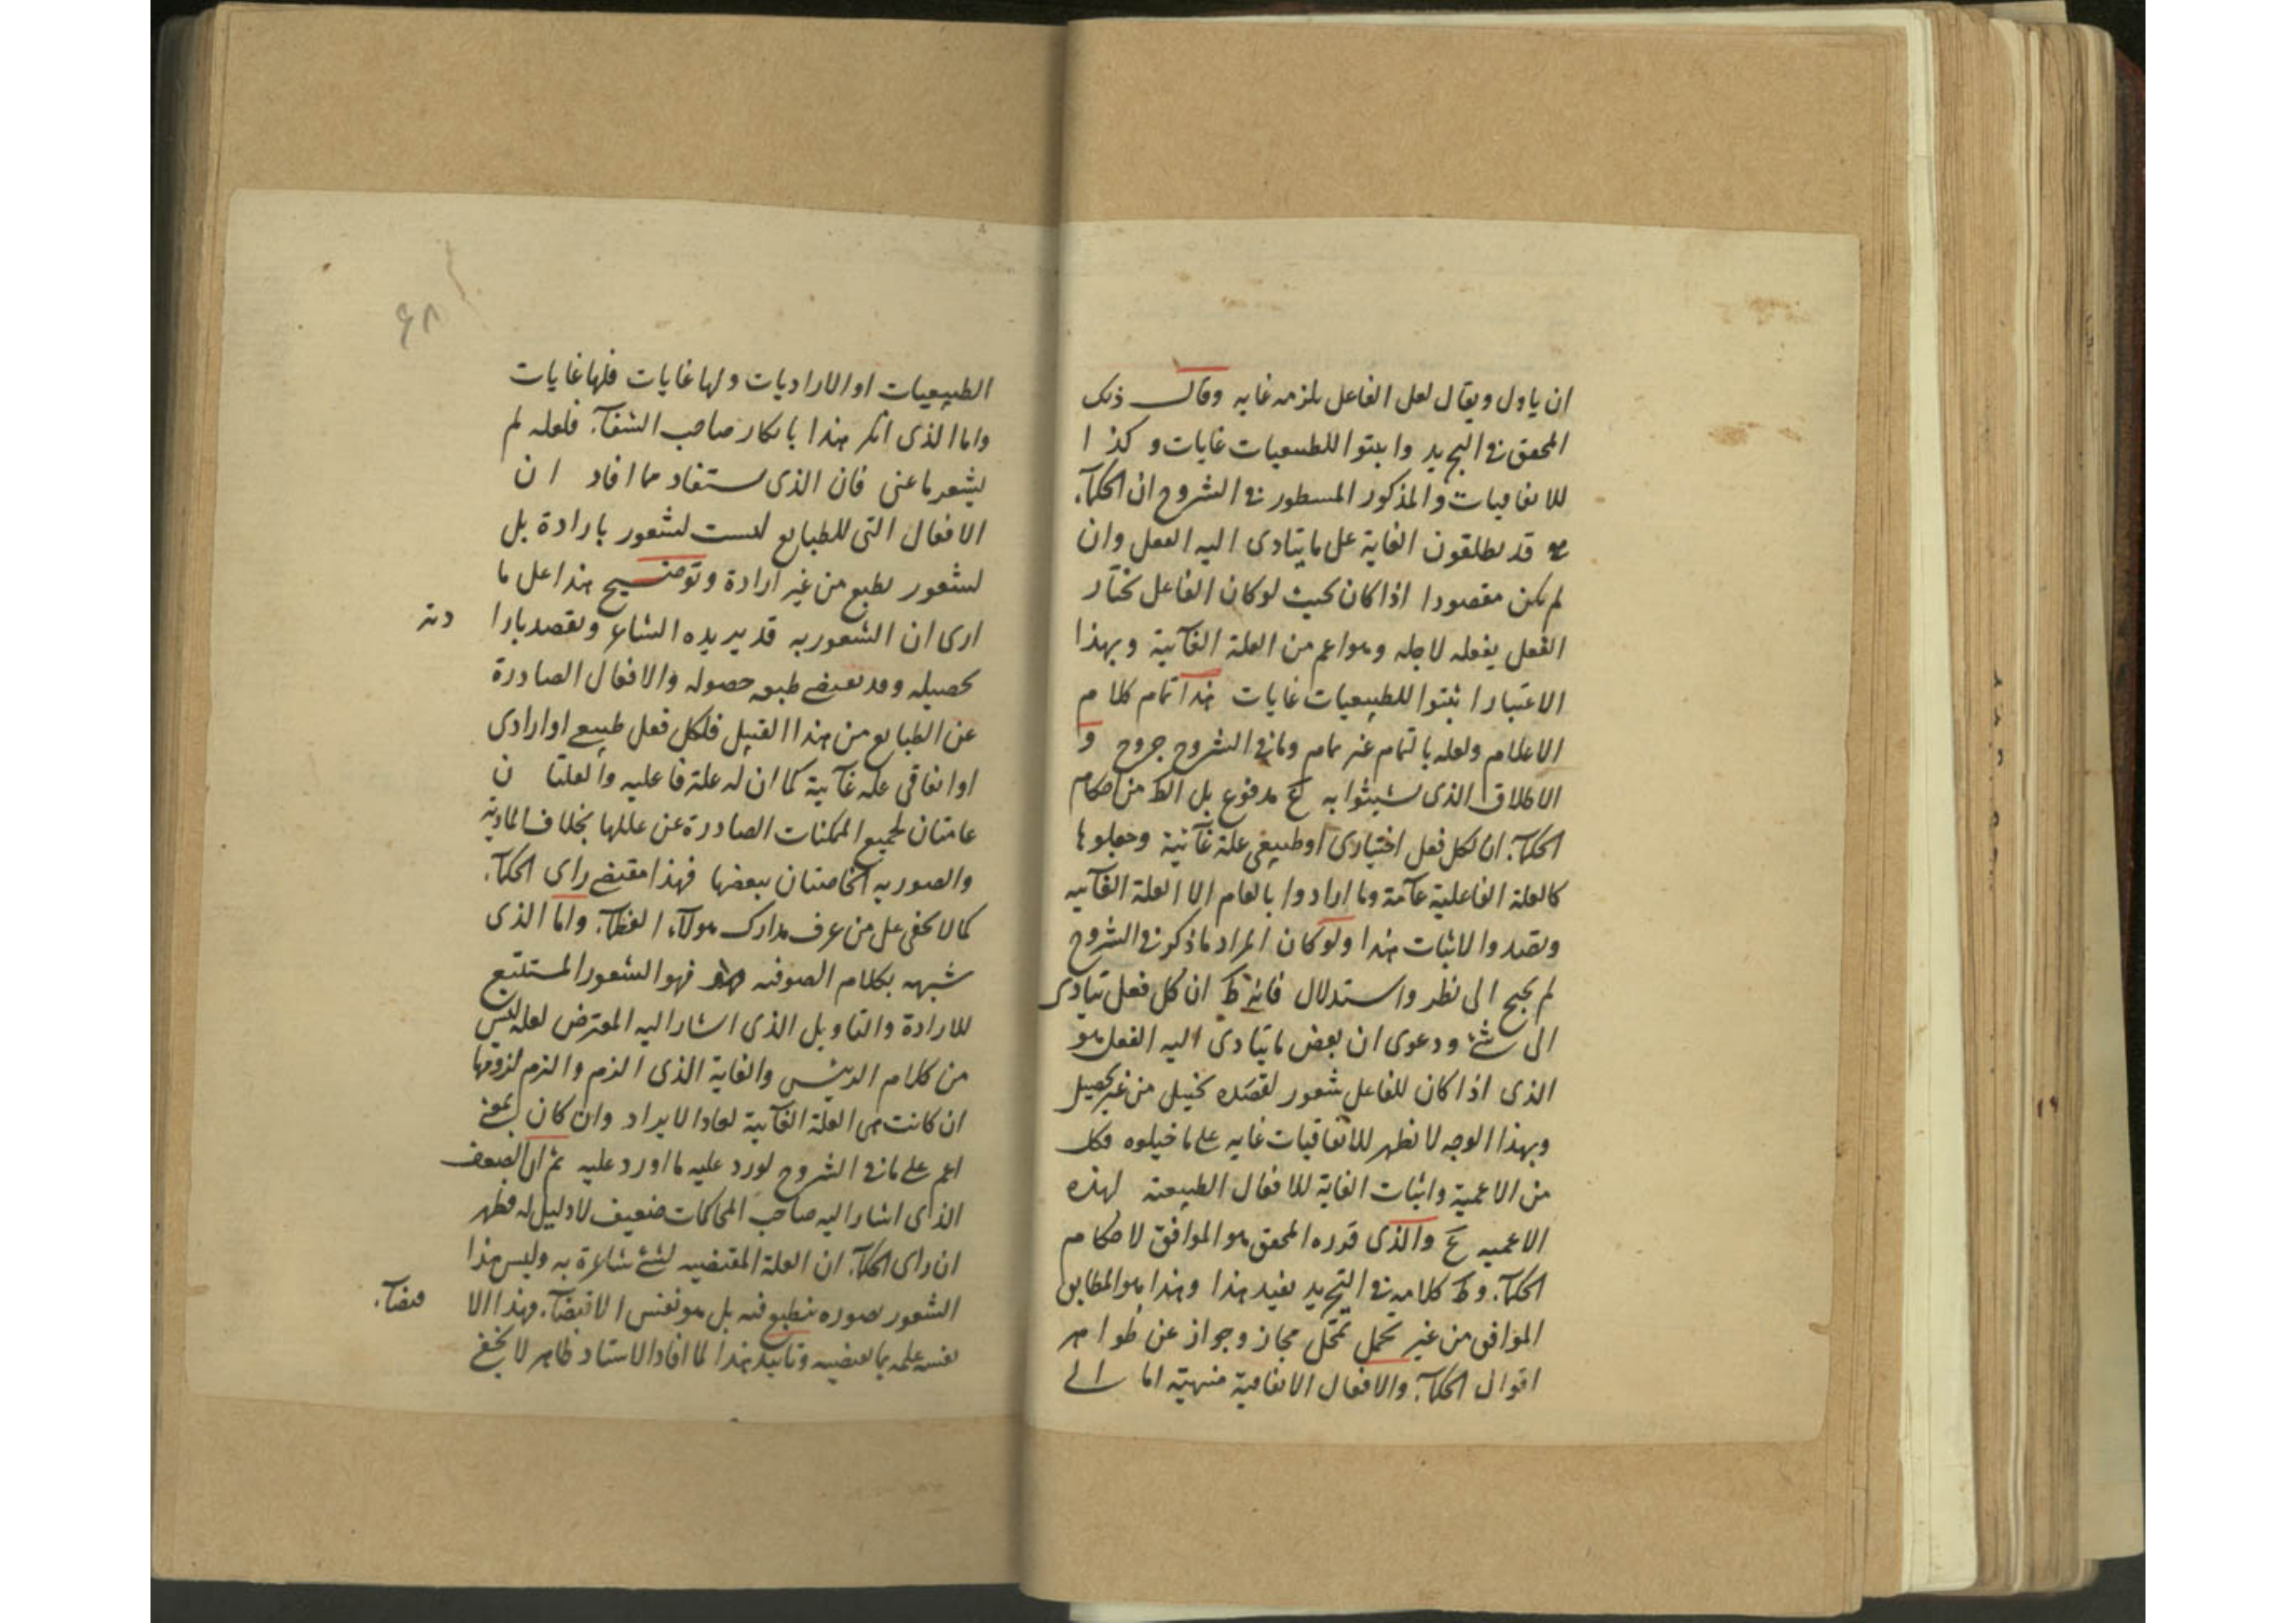 ان ياول ويقال لعل الفاعل يلزمه غايه وقال ذلك
المحقق في التجريد واثبتوا للطبيعيات غايات وكذا
للاتفاقيات والمذكور المسطور في الشروح ان الحكمآء
قد يطلقون الغاية على ما يتادى اليه الفعل وان
لم يكن مقصودا اذا كان بحيث لو كان الفاعل مختار
الفعل يفعله لاجله وهو اعم من العلة الغآئية وبهذا
الاعتبار اثبتوا للطبيعيات غايات هذا تمام كلام
الاعلام ولعله بالتمام غير تمام وما في الشروح جروح و
الاطلاق الذى تشبثوا به مم مدفوع بل الظ من احكام
الحكمآء ان لكل فعل اختيارى او طبيعى علة غآئية وجعلوها
كالعلة الفاعلية عآمة وما ارادوا بالعام الا العلة الغآئيه
وتصدوا لاثبات هذا ولو كان المراد ما ذكر في الشروح
لم يحتج الى نظر واستدلال فانه ظ ان كل فعل يتادى
الى شئ ودعوى ان بعض ما يتادى اليه الفعل هو
الذى اذا كان للفاعل شعور لقصده تخييل من غير تحصيل
وبهذا الوجه لا يظهر للاتفاقيات غايه على ما خيلوه فكل
من الاعمية واثبات الغاية للافعال الطبيعية لهذه
الاعميه مم والذى قرره المحقق هو الموافق لاحكام
الحكمآء وظ كلامه في التجريد يفيد هذا وهذا هو المطابق
الموافق من غير تحمل تمحل مجاز وجواز عن ظواهر
اقوال الحكمآء والافعال الاتفاقية منتهية اما الى
٤٨
الطبيعيات او الاراديات ولها غايات فلها غايات
واما الذى انكر هذا بانكار صاحب الشفآء فلعله لم
يشعر ما عنى فان الذى يستفاد مما افاد ان
الافعال التى للطبايع ليست لشعور بارادة بل
لشعور بطبع من غير ارادة وتوضيح هذا على ما
ارى ان الشعور به قد يريده الشاعر ويقصد بارادته
تحصيله وقد يقتضى طبعه حصوله والافعال الصادرة
عن الطبايع من هذا القبيل فلكل فعل طبيعى او ارادى
او اتفاقى علة غآئية كما ان له علة فاعليه والعلتان
عامتان لجميع الممكنات الصادرة عن عللها بخلاف المادية
والصوريه الخاصتان ببعضها فهذا مقتضى راى الحكمآء
كما لا يخفى على من عرف مدارك هولآء العظمآء واما الذى
شبهه بكلام الصوفيه فهو الشعور المستتبع
للارادة والتاويل الذى اشار اليه المعترض لعله ليس
من كلام الرئيس والغاية الذى الزم والتزم لزومها
ان كانت هى العلة الغآئية لعاد الايراد وان كان بمعنى
اعم على ما في الشروح لورد عليه ما اورد عليه ثم ان الضعف
الذى اشار اليه صاحب المحاكمات ضعيف لا دليل له فظهر
ان راى الحكمآء ان العلة المقتضيه لشئ شاعرة به وليس هذا
الشعور بصوره تنطبع فيه بل هو نفس الاقتضآء وهذا الاقتضآء
نفسه علمه بما يقتضيه وتاييد هذا لما افاد الاستاد ظاهر لا يخفى